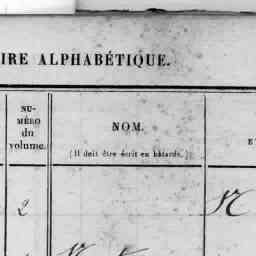 IRE ALPHABÉTIQUE.
NU-
MÉRO
du
volume.
NOM.
(Il doit être écrit en bâtarde.)
E
2
N